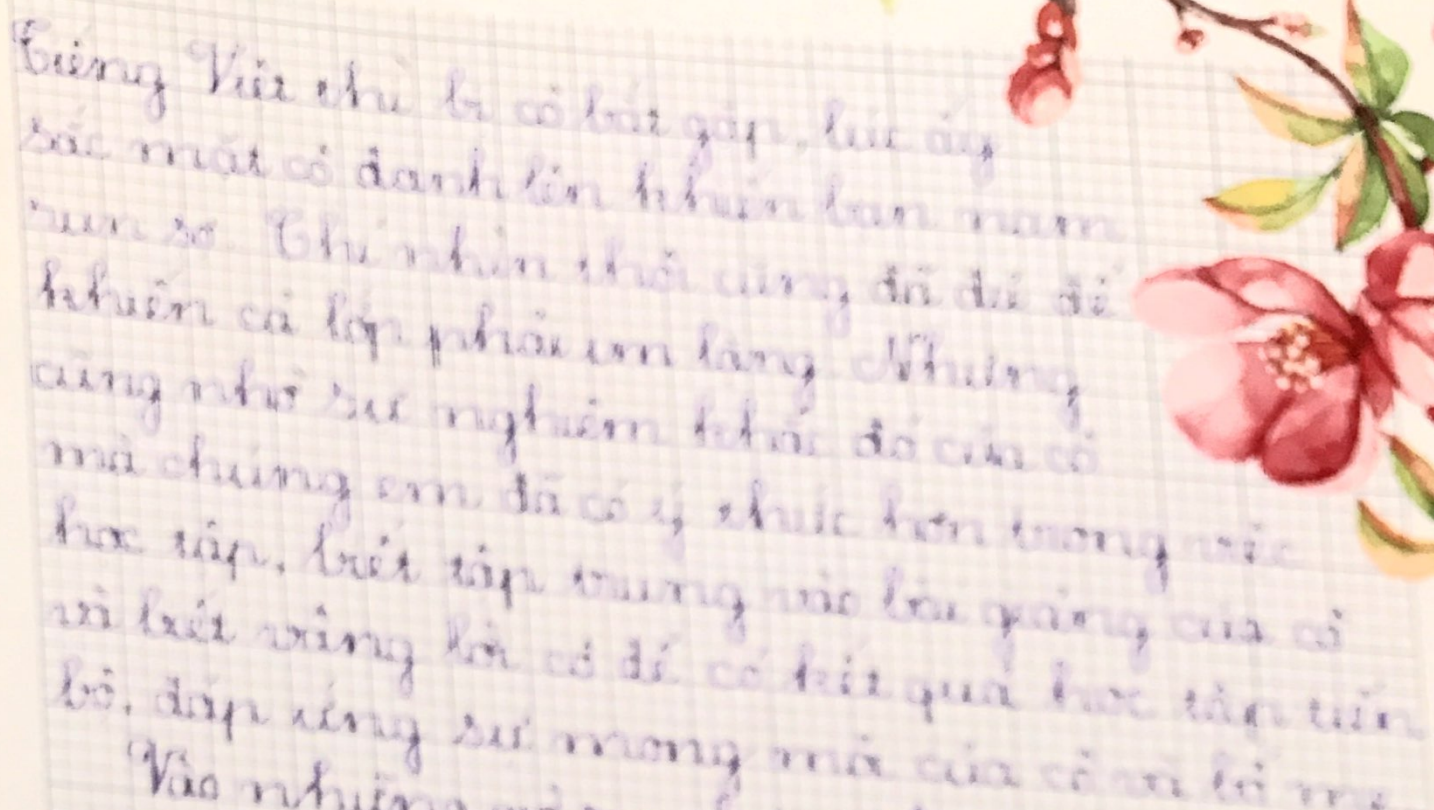 Tiếng Việt thì bị cô bắt gặp, lúc ấy
sắc mặt cô đanh lên khiến bạn nam
run sợ. Chỉ nhìn thôi cũng đã đủ để
khiến cả lớp phải im lặng. Nhưng
cũng nhờ sự nghiêm khắc đó của cô
mà chúng em đã có ý thức hơn trong việc
học tập, biết tập trung vào bài giảng của cô
và biết vâng lời cô để có kết quả học tập tiến
bộ, đáp ứng sự mong mỏi của cô và bố mẹ
Vào những